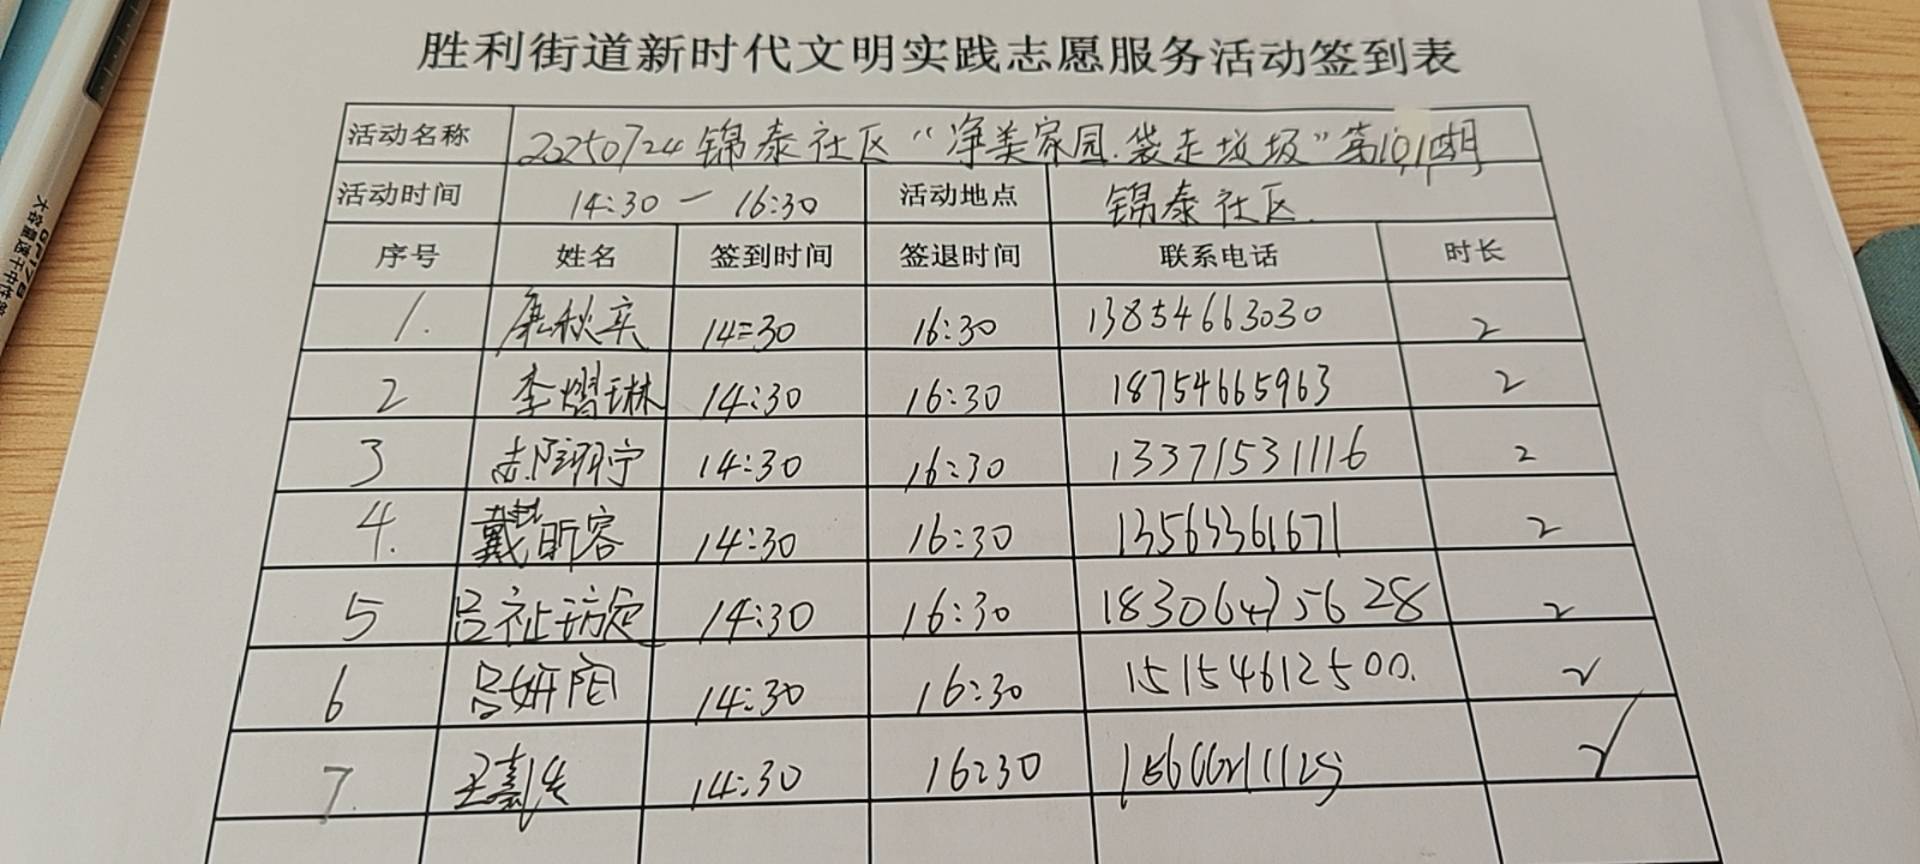 胜利街道新时代文明实践志愿服务活动签到表
活动名称 20250724锦泰社区“净美家园.袋走垃圾”第101期
活动时间 14:30 — 16:30 活动地点 锦泰社区.
序号 姓名 签到时间 签退时间 联系电话 时长
1. 秋实 14:30 16:30 13854663030 2
2 李熠琳 14:30 16:30 18754665963 2
3 翊宁 14:30 16:30 13371531116 2
4. 戴昕容 14:30 16:30 13563361671 2
5 吕祉 14:30 16:30 18306475628 2
6 吕妍阳 14:30 16:30 15154612500. 2
7. 王嘉 14:30 16:30